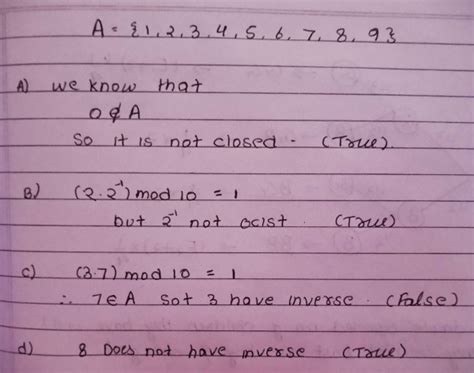 A = {1, 2, 3, 4, 5, 6, 7, 8, 9}
A) we know that
0 ∉ A
So it is not closed - (True).
B) (2.2⁻¹) mod 10 = 1
but 2⁻¹ not ocist. (True)
c) (3.7) mod 10 = 1
∴ 7 ∈ A Sot 3 have inverse. (False)
d) 8 Does not have inverse (True)